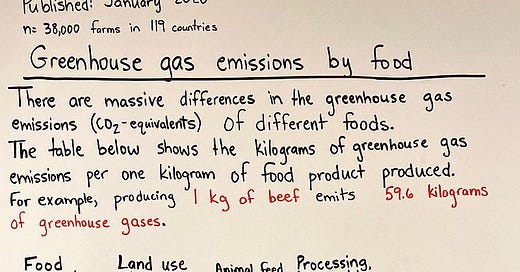 Published: January
n= 38,000 farms in 119 countries
Greenhouse gas emissions by food
There are massive differences in the greenhouse gas
emissions (CO2-equivalents) of different foods.
The table below shows the kilograms of greenhouse gas
emissions per one kilogram of food product produced.
For example, producing 1 kg of beef emits 59.6 kilograms
of greenhouse gases.
Food Land use Animal feed Processing,